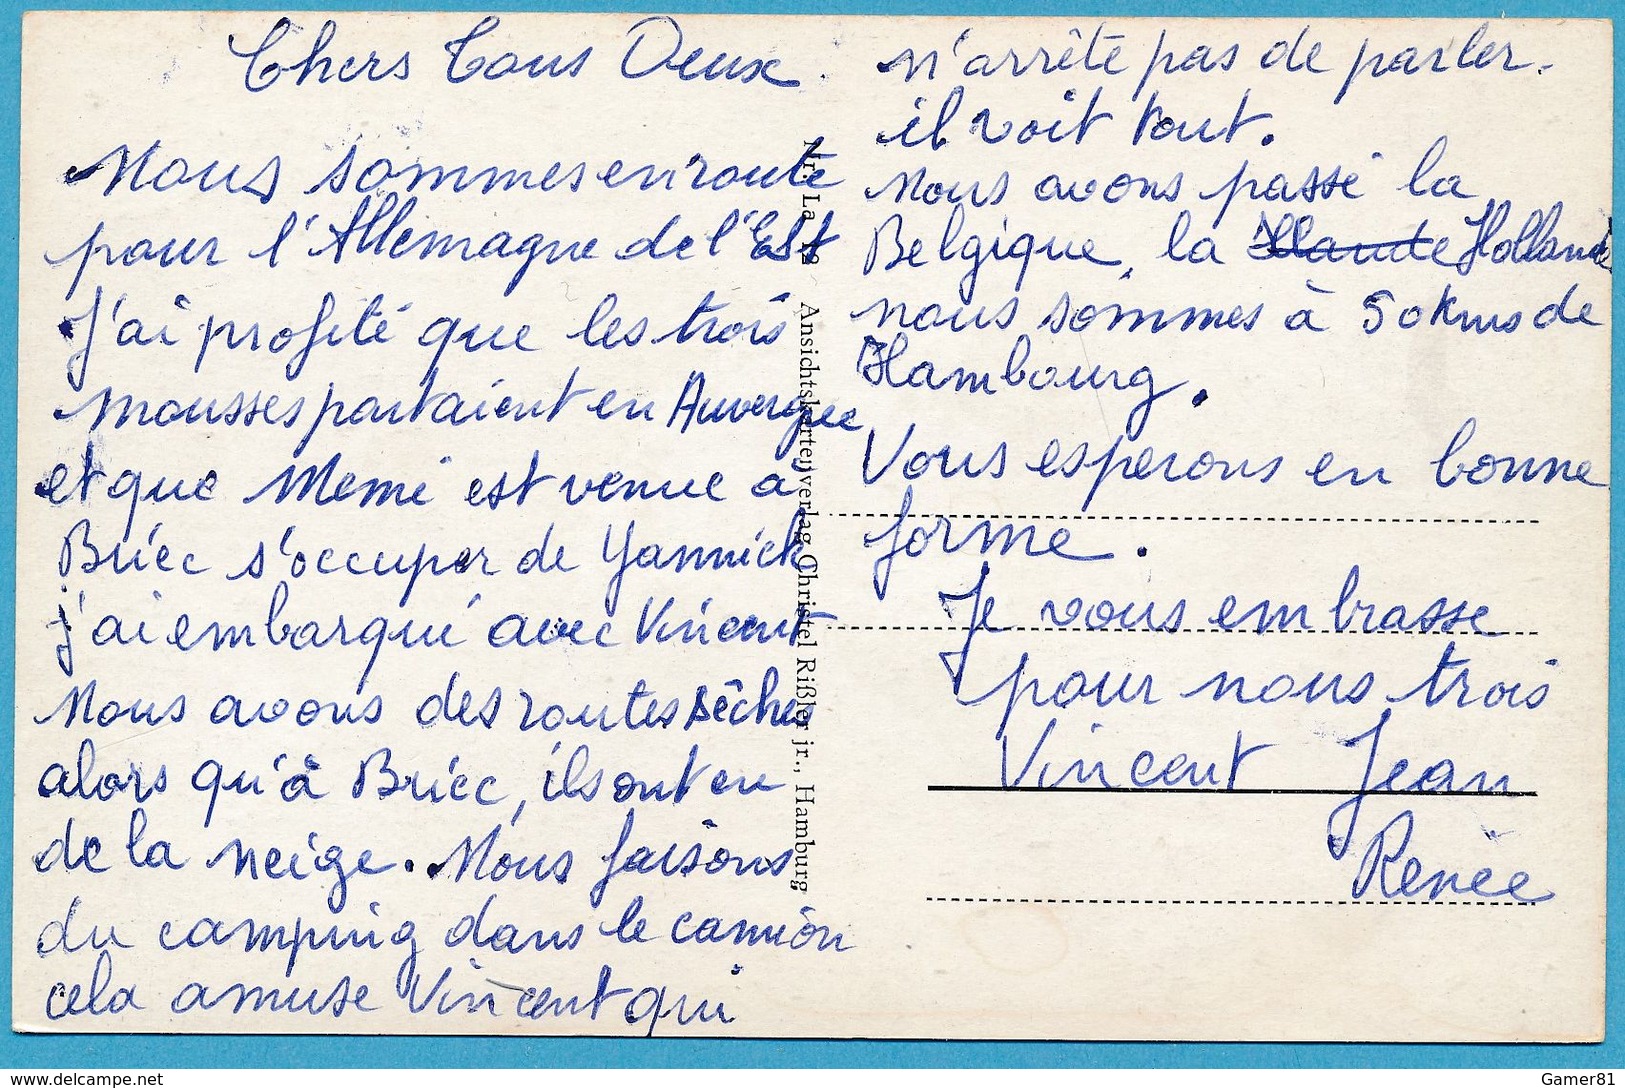 Chers Tous Deux.
Nous sommes en route
pour l'Allemagne de l'Est
J'ai profité que les trois
mousses partaient en Auvergne
et que Memé est venue à
Briec s'occuper de Yannick
j'ai embarqué avec Vincent
Nous avons des routes sèches
alors qu'à Briec, ils ont eu
de la neige. Nous faisons
du camping dans le camion
cela amuse Vincent qui
n'arrête pas de parler.
il voit tout.
Nous avons passé la
Belgique, la Hollande
nous sommes à 50 kms de
Hambourg.
Vous esperons en bonne
forme.
Je vous embrasse
pour nous trois
Vincent Jean
Renée
Ansichtskartenverlag Christel Rißler jr., Hamburg
delcampe.net
Gamer81